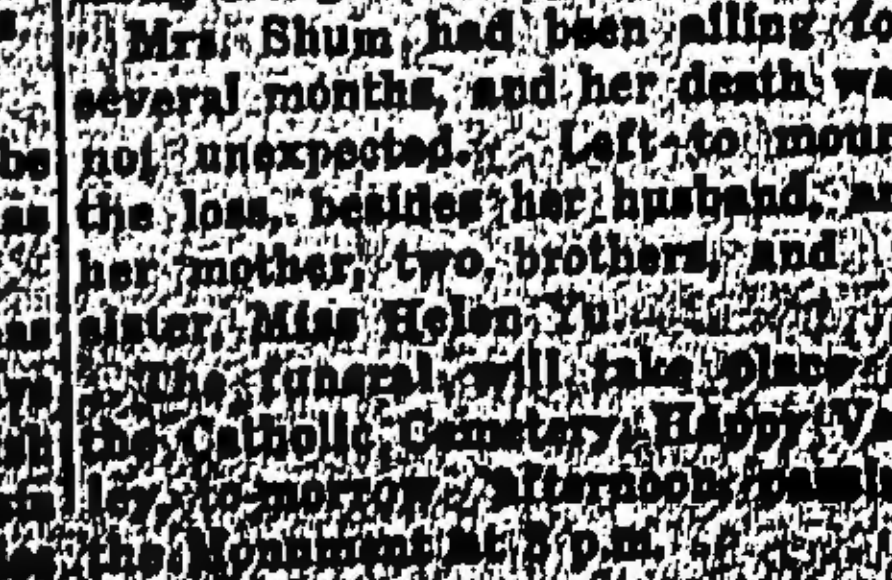 Mrs. Shum had been ailing fo
several months, and her death wa
not unexpected. Left to mour
the loss, besides her husband, a
her mother, two brothers, and
sister, Miss Helen Yu
The funeral will take place
the Catholic Cemetery, Happy Va
ley, to-morrow afternoon,
the Monument at p.m.